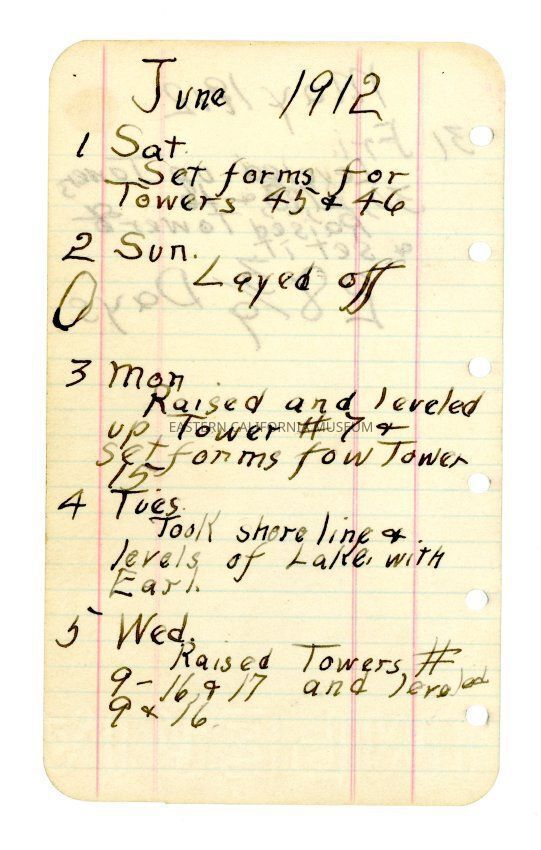 June 1912
1 Sat.
Set forms for
Towers 45 & 46
2 Sun.
Layed off
0
3 Mon
Raised and leveled
EASTERN CALIFORNIA MUSEUM
up Tower # 7 &
Set forms fow Tower
15
4 Tues.
Took shore line &
levels of Lake with
Earl.
5 Wed.
Raised Towers #
9 - 16 & 17 and leveled
9 & 16